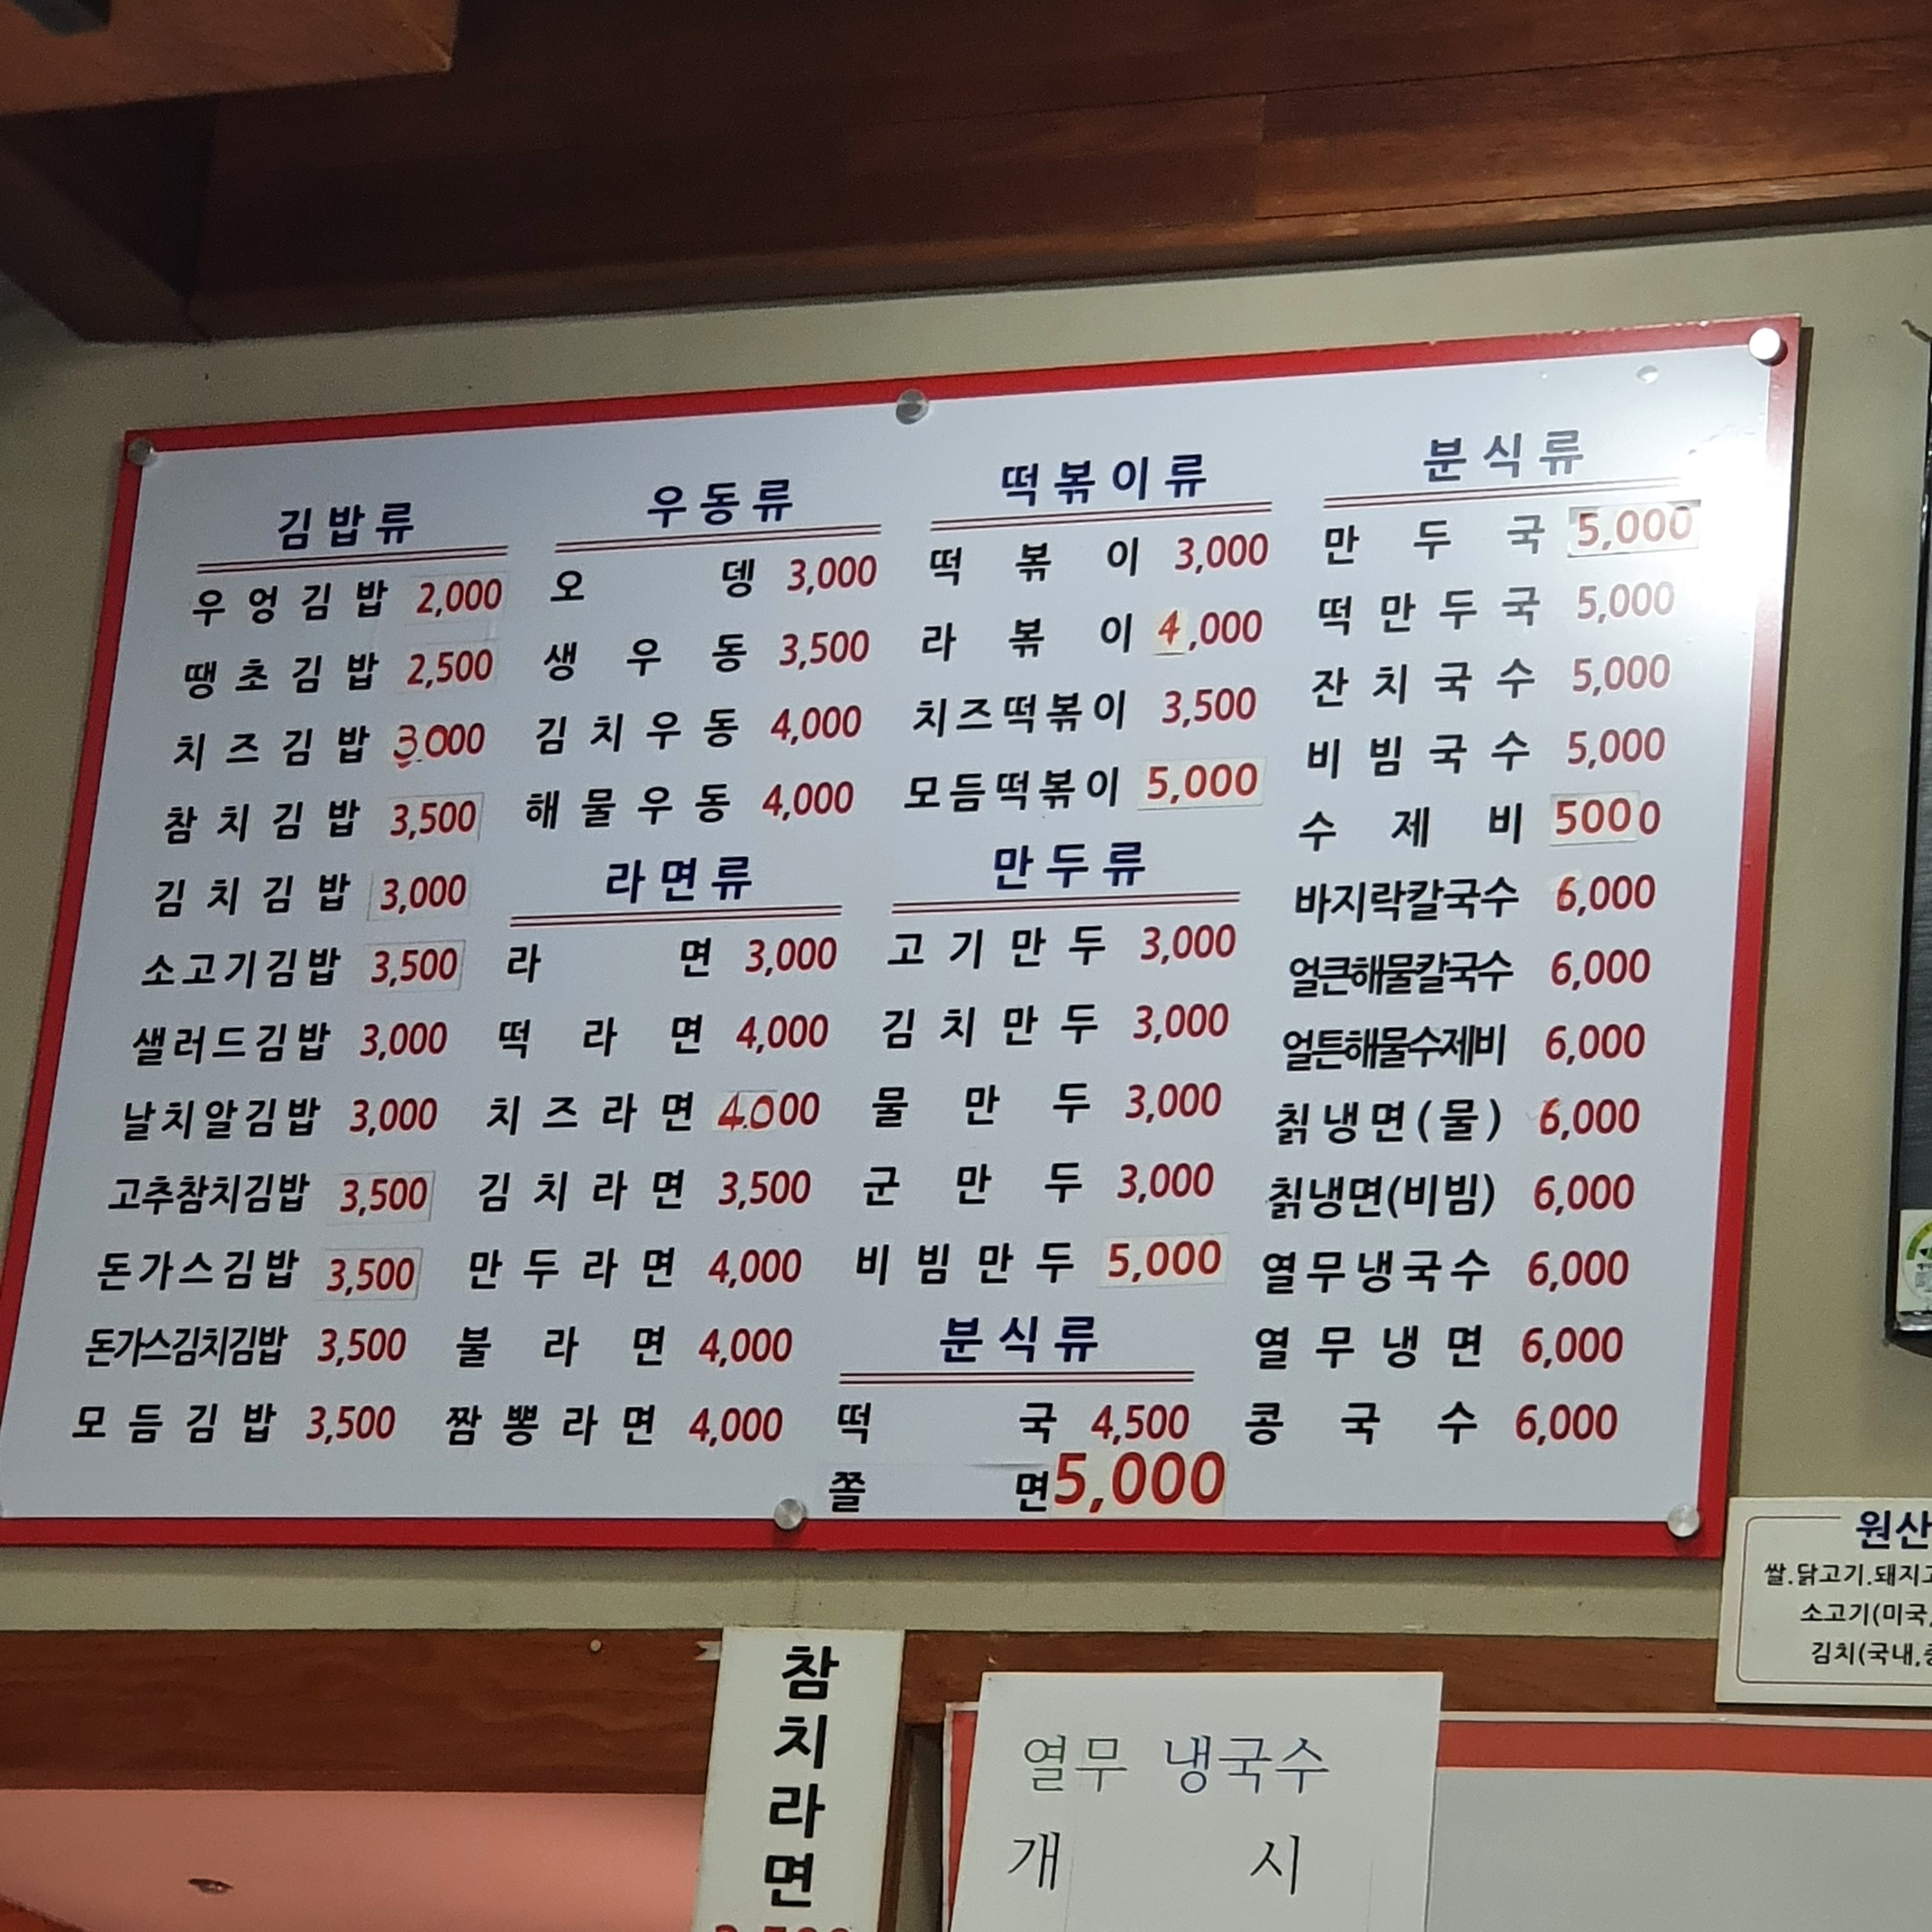 김밥류
우엉김밥 2,000
땡초김밥 2,500
치즈김밥 3,000
참치김밥 3,500
김치김밥 3,000
소고기김밥 3,500
샐러드김밥 3,000
날치알김밥 3,000
고추참치김밥 3,500
돈가스김밥 3,500
돈가스김치김밥 3,500
모듬김밥 3,500
우동류
오뎅 3,000
생우동 3,500
김치우동 4,000
해물우동 4,000
라면류
라면 3,000
떡라면 4,000
치즈라면 4.000
김치라면 3,500
만두라면 4,000
불라면 4,000
짬뽕라면 4,000
떡볶이류
떡볶이 3,000
라볶이 4,000
치즈떡볶이 3,500
모듬떡볶이 5,000
만두류
고기만두 3,000
김치만두 3,000
물만두 3,000
군만두 3,000
비빔만두 5,000
분식류
떡국 4,500
쫄면 5,000
분식류
만두국 5,000
떡만두국 5,000
잔치국수 5,000
비빔국수 5,000
수제비 5000
바지락칼국수 6,000
얼큰해물칼국수 6,000
얼튼해물수제비 6,000
칡냉면(물) 6,000
칡냉면(비빔) 6,000
열무냉국수 6,000
열무냉면 6,000
콩국수 6,000
원산
쌀.닭고기.돼지고
소고기(미국,
김치(국내,중
참치라면
열무 냉국수
개시